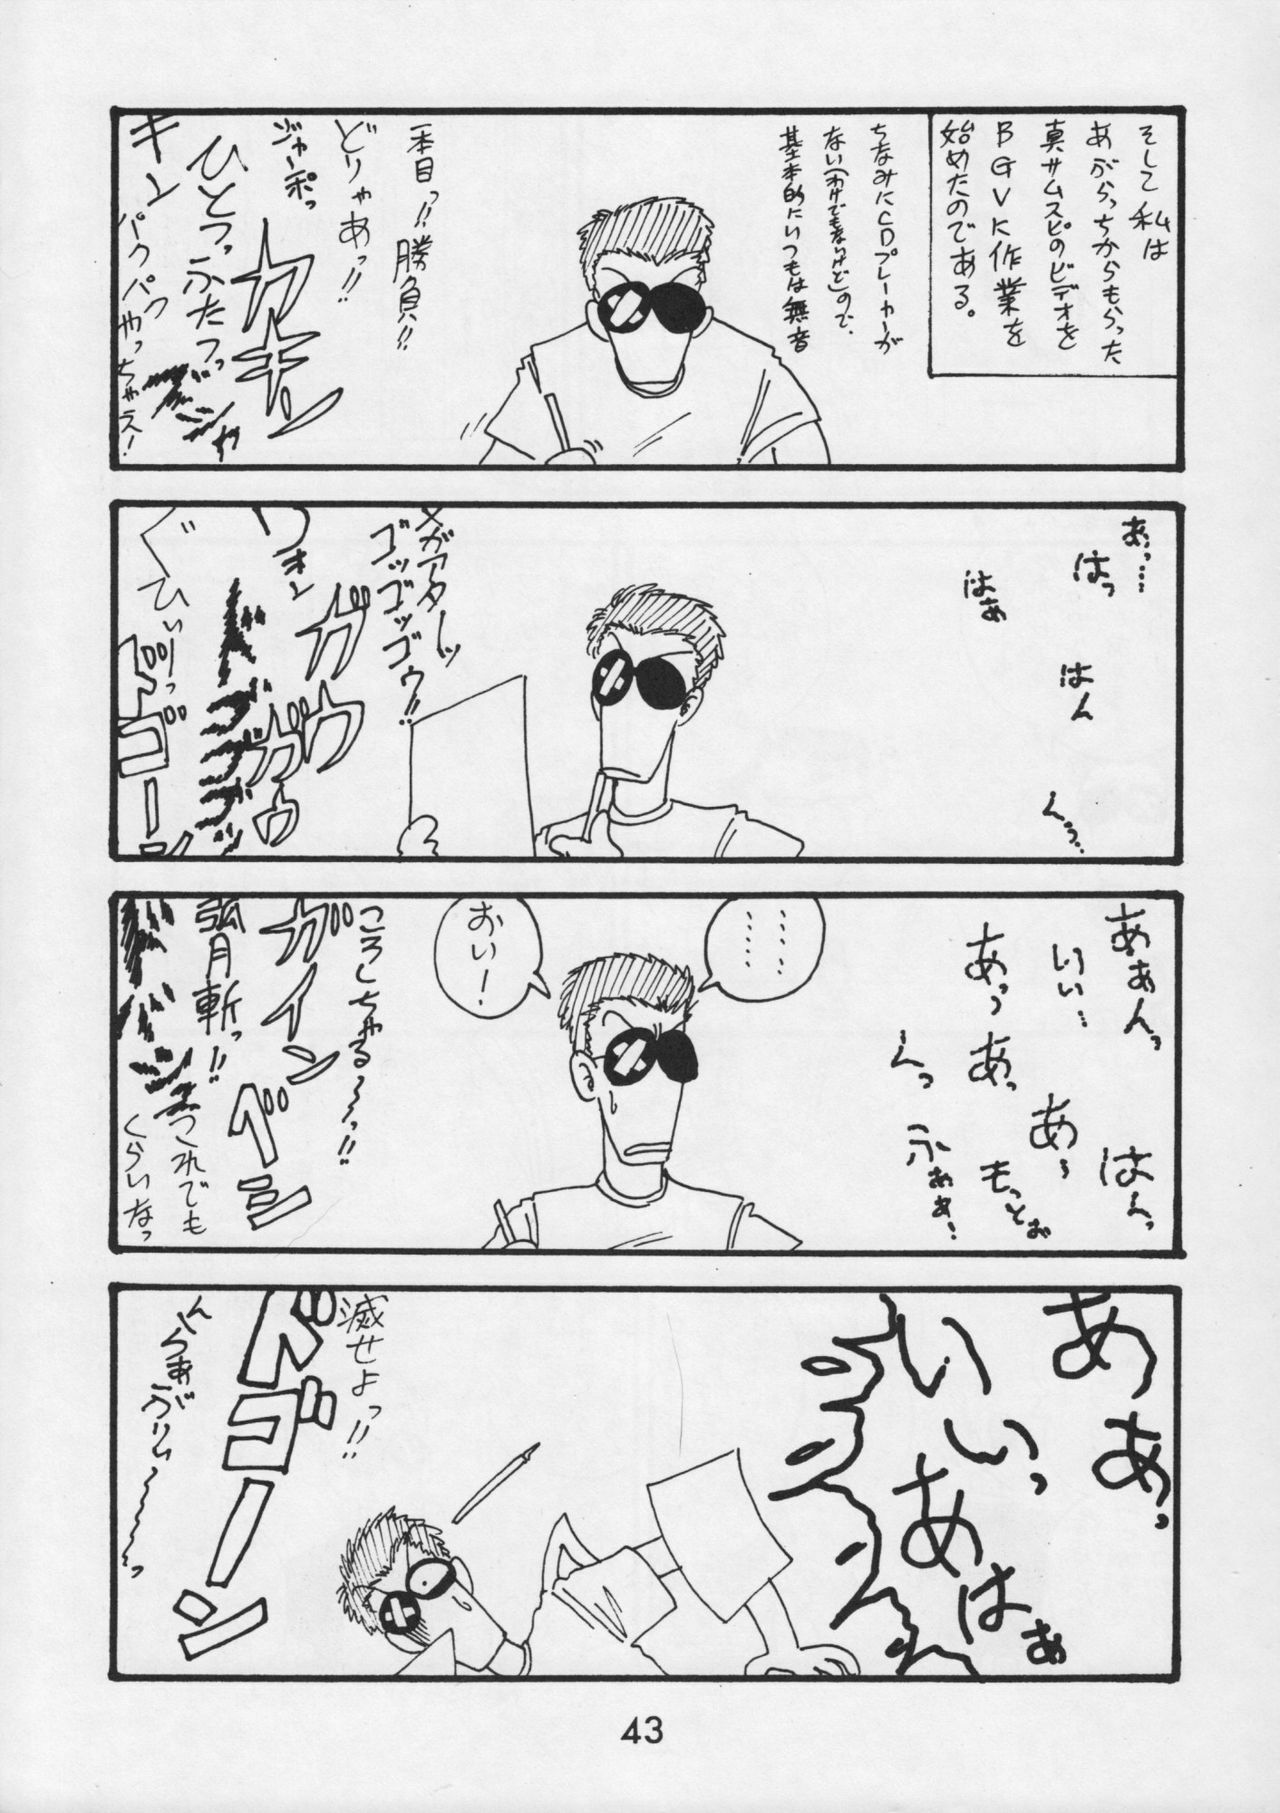 そして私は
あがらっちからもらった
真サムスピのビデオを
BGVに作業を
始めたのである。
ちなみにCDプレーカーが
ない(わけでもないけど)ので、
基本的にいつもは無音
一本目っ!!勝負!!
どりゃあっ!!
ジャーポっ
カキン
ガキン
ひとつっふたつっ
キン
パクパクっ
やっちゃえ!
あっ……
はっ
はぁ
はん
んっ…
メガアターッ
ゴッゴゴッゴゥ!!
ウォン
ガガウ
ガガウ
ぐひぃりっ
ドゴーン
ああんっ
いい…
あっあっ
んっ
はんっ
あ〜
もっとぉ
ふぁぁ!
………
おい!
ころしちゃる〜っ!!
ガイン
ベシ
弧月斬っ!!
これでも
くらいなっ
ああっ
いいっ
あはぁ
滅せよっ!!
ドゴーン